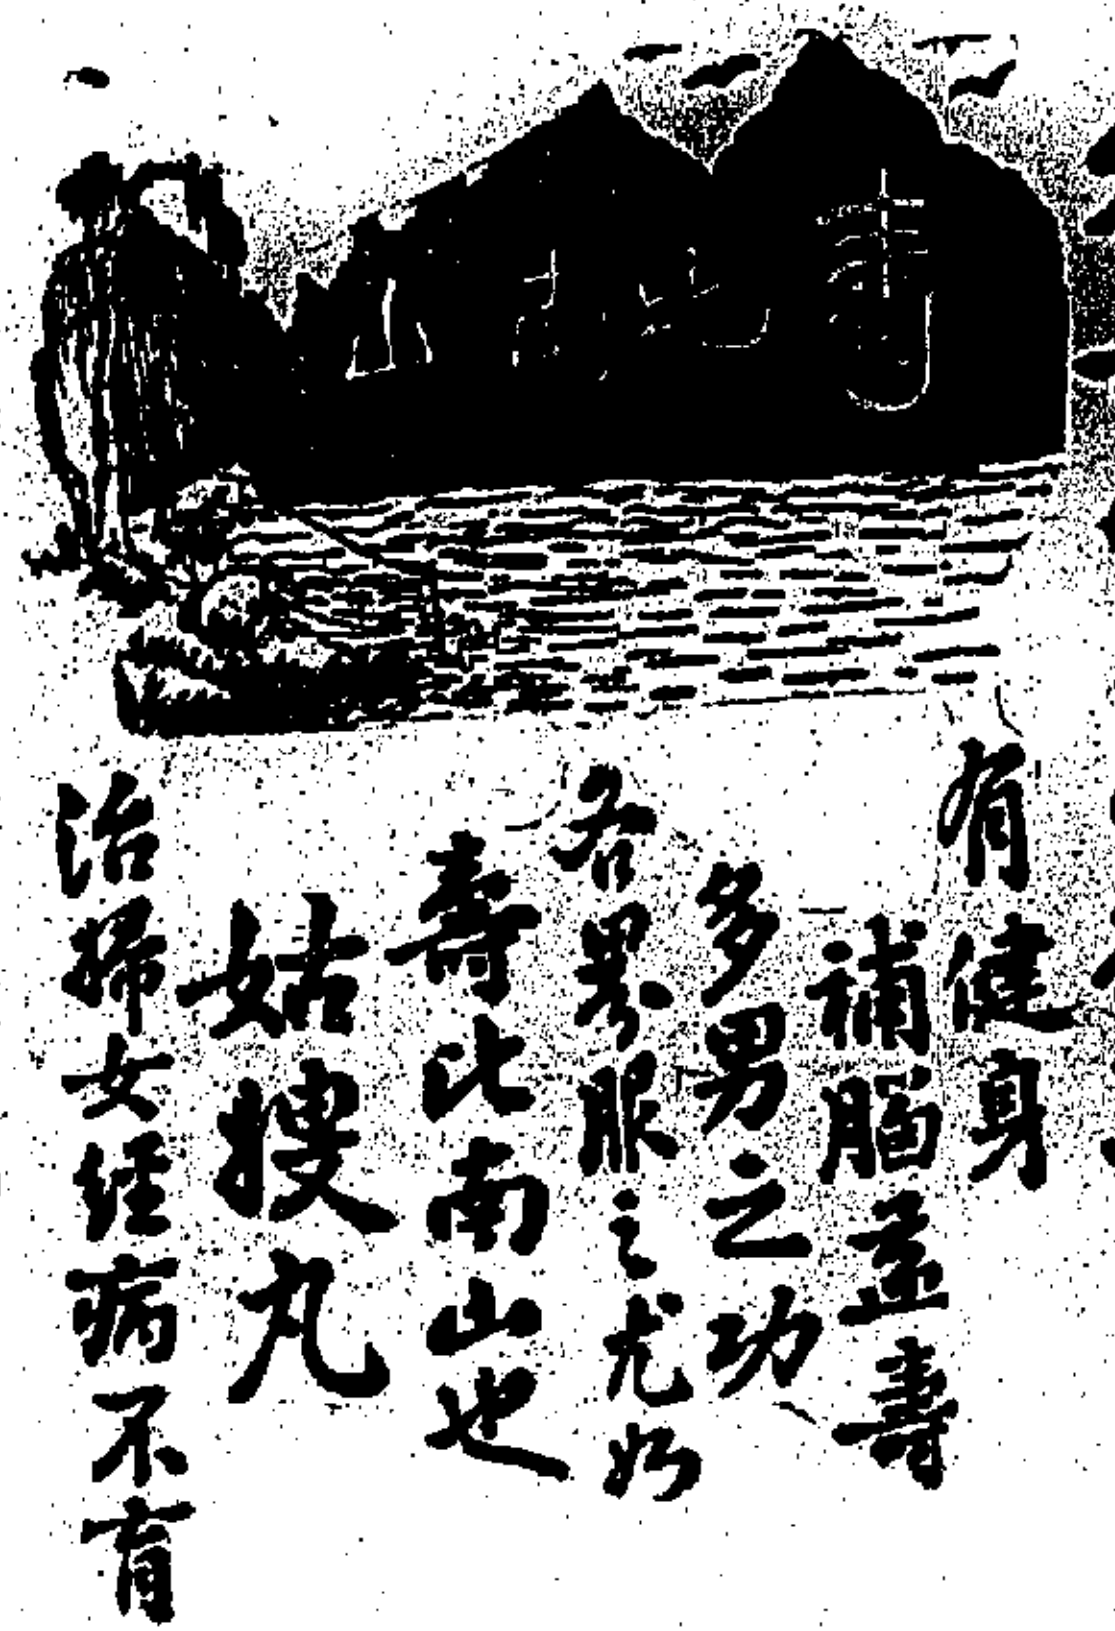 壽比南山
有健身
補腦益壽
多男之功
各界服之尤妙
壽比南山也
姑嫂丸
治婦女經病不育